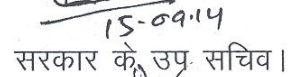 15-09.14
सरकार के उप सचिव।